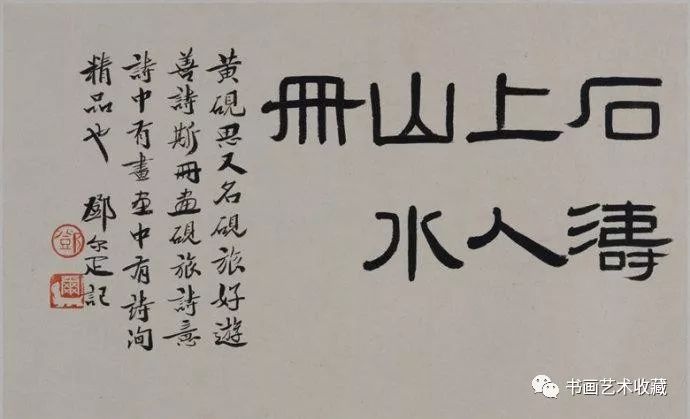 石濤
上人
山水
冊
黃硯思又名硯旅好遊
善詩斯冊畫硯旅詩意
詩中有畫畫中有詩洵
精品也 鄧尔疋記
鄧
书画艺术收藏